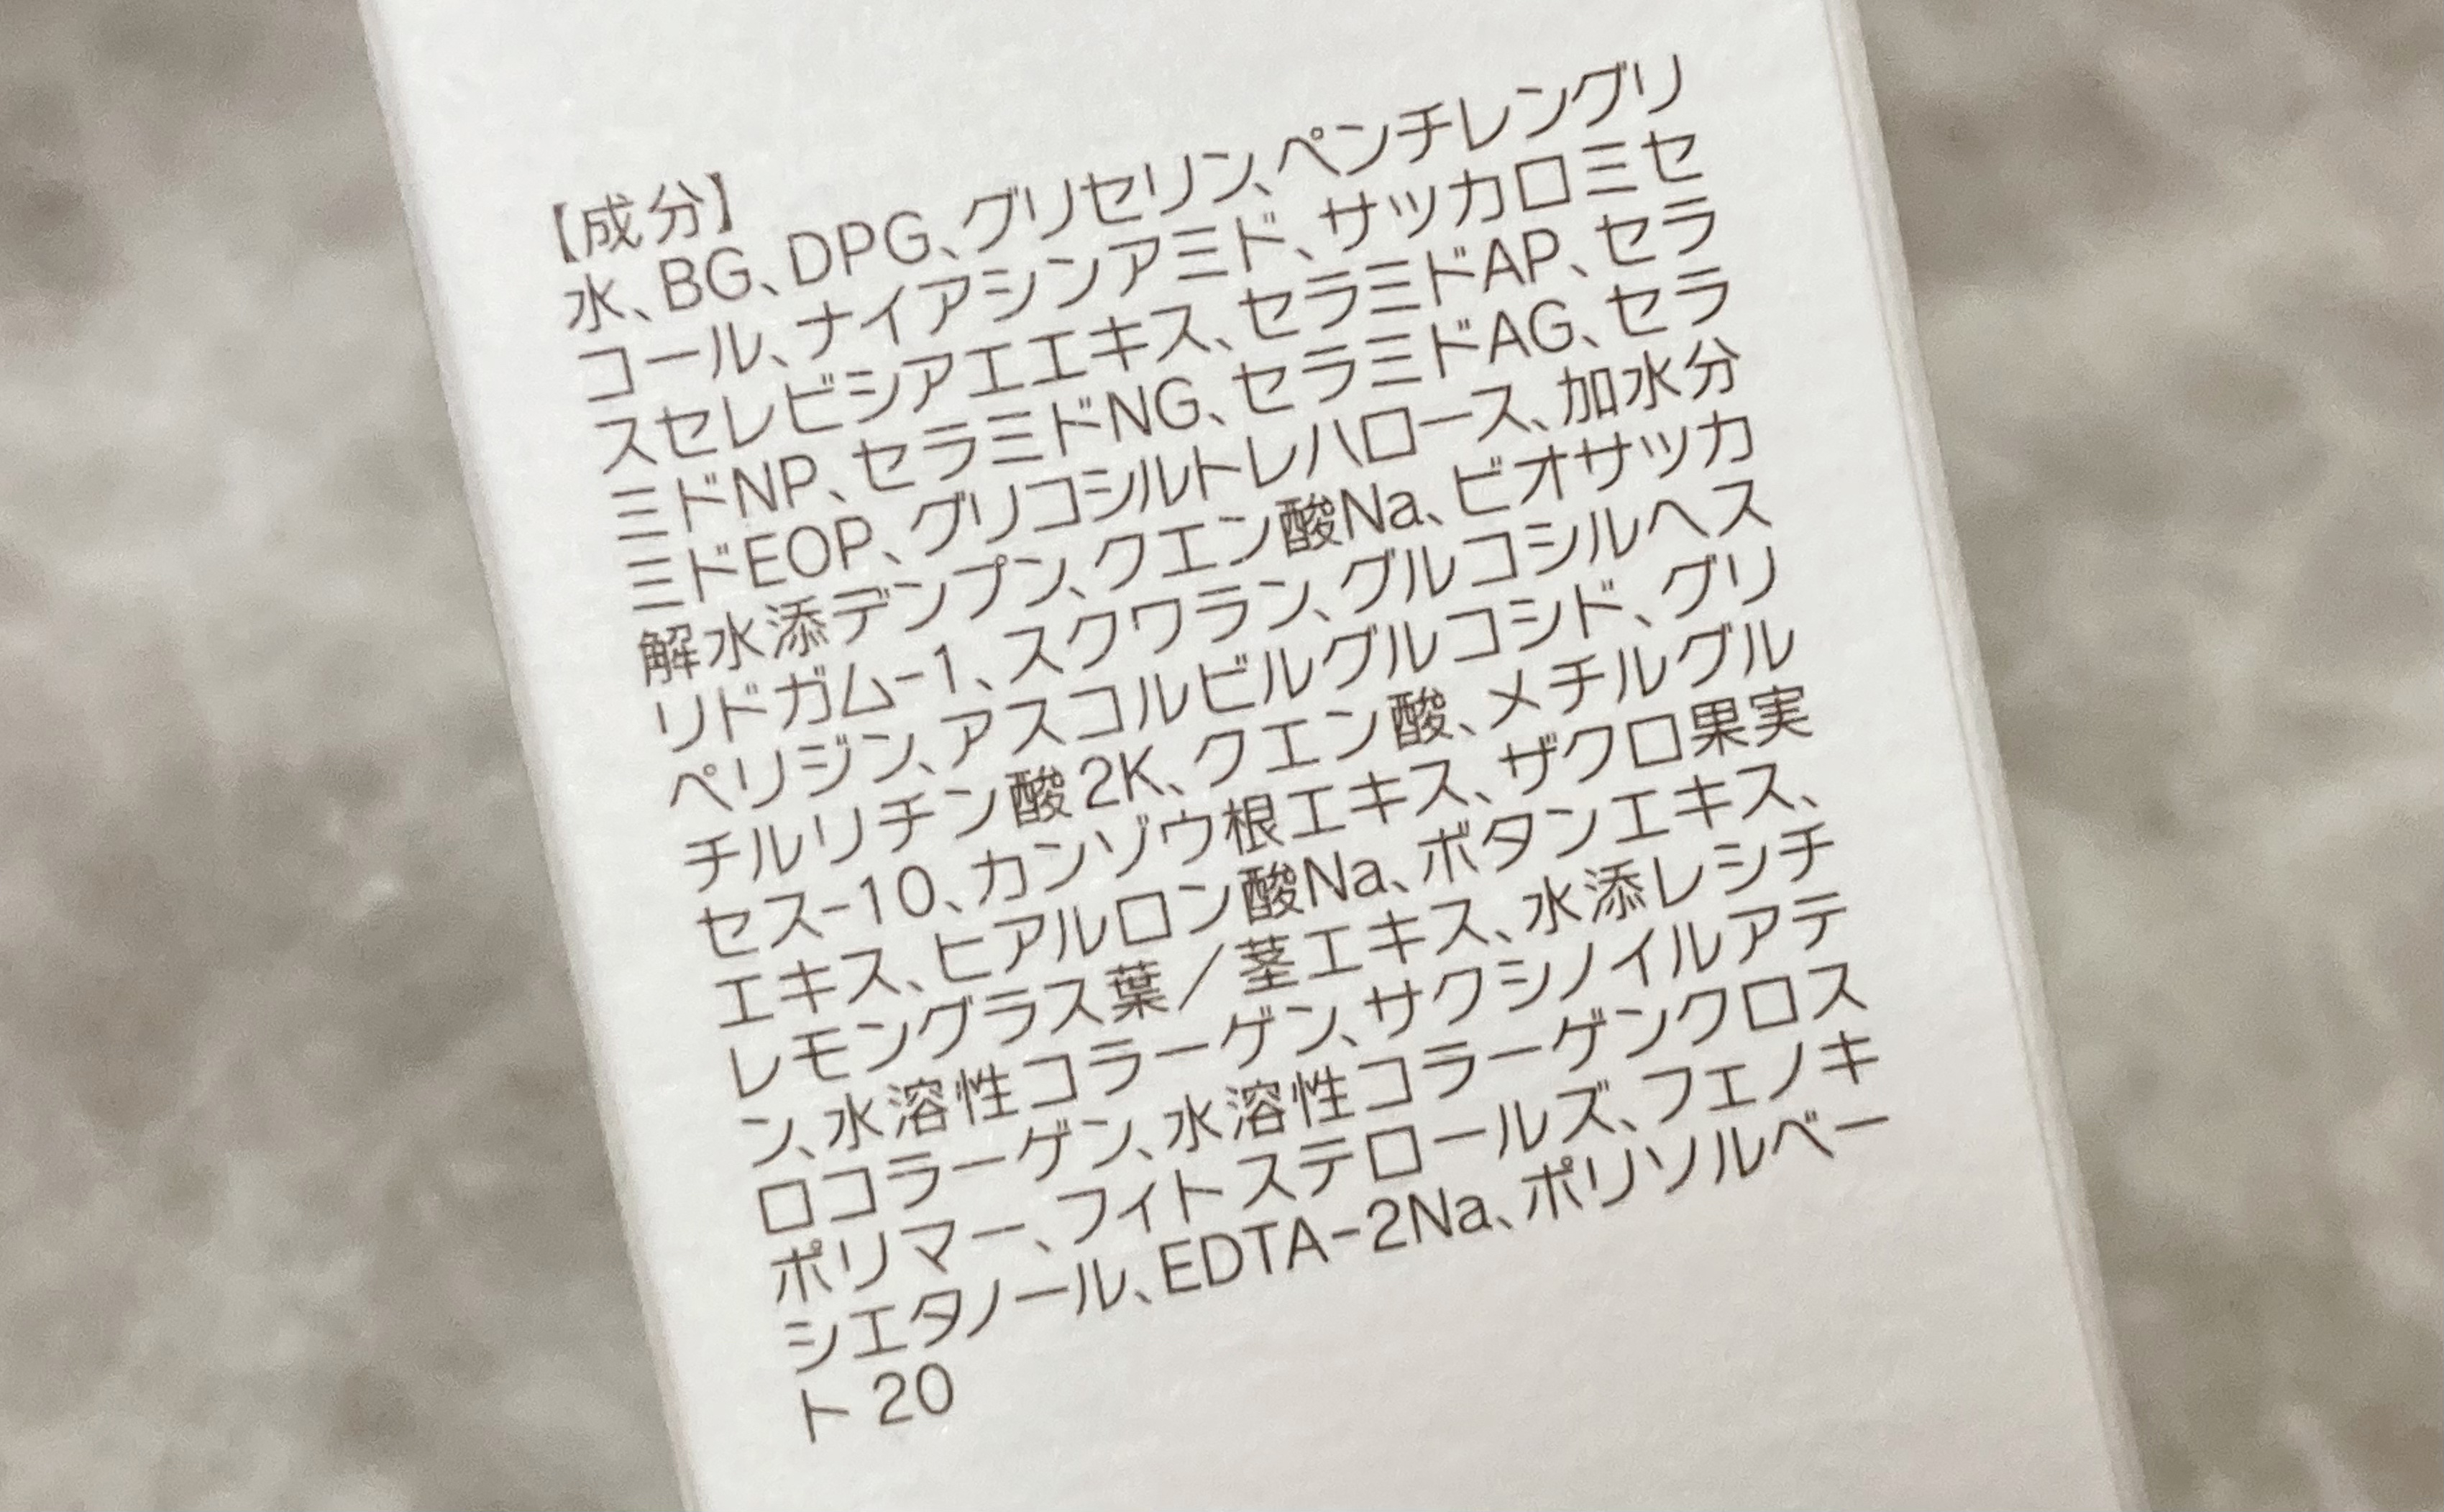 【成分】
水、BG、DPG、グリセリン、ペンチレングリ
コール、ナイアシンアミド、サッカロミセ
スセレビシアエエキス、セラミドAP、セラ
ミドNP、セラミドNG、セラミドAG、セラ
ミドEOP、グリコシルトレハロース、加水分
解水添デンプン、クエン酸Na、ビオサッカ
リドガム-1、スクワラン、グルコシルヘス
ペリジン、アスコルビルグルコシド、グリ
チルリチン酸2K、クエン酸、メチルグル
セス-10、カンゾウ根エキス、ザクロ果実
エキス、ヒアルロン酸Na、ボタンエキス、
レモングラス葉／茎エキス、水添レシチ
ン、水溶性コラーゲン、サクシノイルアテ
ロコラーゲン、水溶性コラーゲンクロス
ポリマー、フィトステロールズ、フェノキ
シエタノール、EDTA-2Na、ポリソルベー
ト20